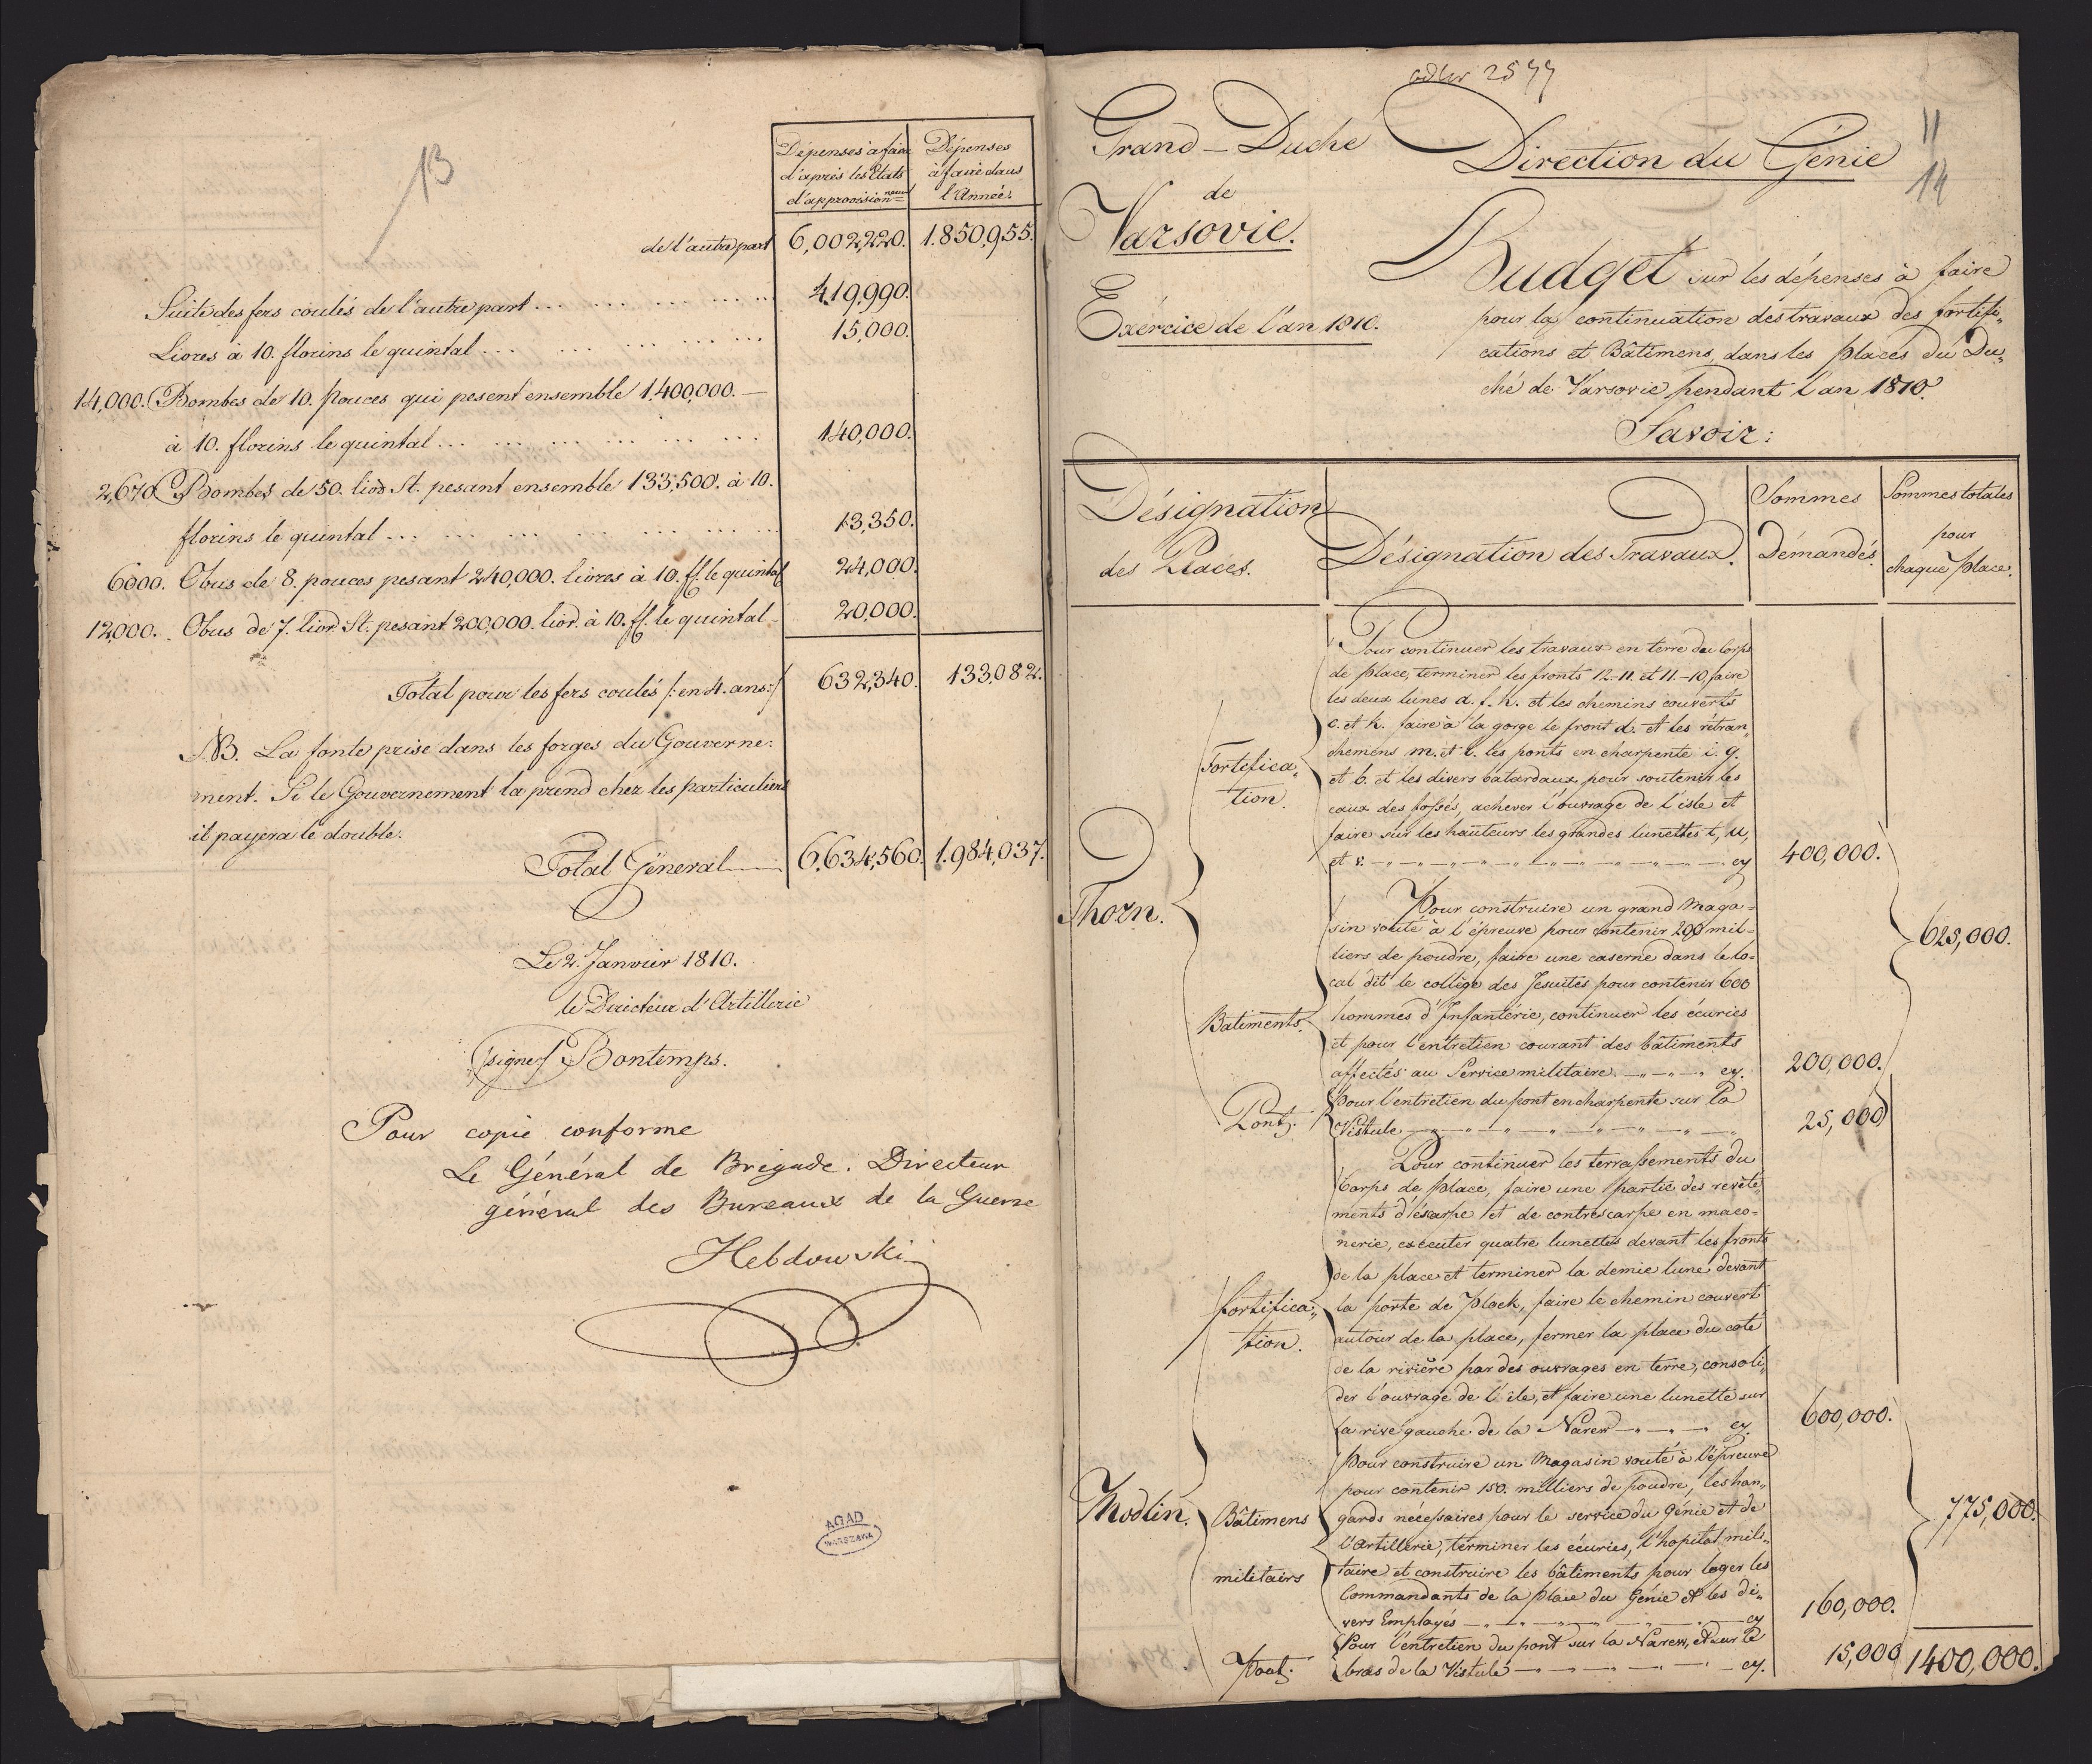 13
Dépenses à faire
d'après les Etats
d'approvision=nem
Dépenses
à faire dans
l'Année.
de l'autre part 6,002,220. 1.850,955.
Suite des fers coulés de l'autre part ... 419,990.
Livres à 10. florins le quintal ... 15,000.
14,000. Bombes de 10. pouces qui pesent ensemble 1,400,000. —
à 10. florins le quintal ... 140,000.
2,670 Bombes de 50. livr. St. pesant ensemble 133,500. à 10.
florins le quintal ... 13,350.
6000. Obus de 8. pouces pesant 240,000. livres à 10. ff. le quintal 24,000.
12,000. Obus de 7. livr. St. pesant 200,000. livr. à 10. ff. le quintal - 20,000.
Total pour les fers coulés /: en 4. ans :/ 632,340. 133,082.
NB. La fonte prise dans les forges du Gouverne-
ment. Si le Gouvernement la prend chez les particuliers
il payera le double.
Total Géneral 6,634,560. 1.984,037.
Le 2. Janvier 1810.
le Directeur d'Artillerie
(signé) Bontemps.
Pour copie conforme
Le Général de Brigade. Directeur
général des Bureaux de la Guerre
Hebdowski
AGAD
WARSZAWA
2577
11
14
Grand-Duché
de
Varsovie.
Exércice de l'an 1810.
Direction du Génie
Budget sur les dépenses à faire
pour la continuation des travaux des fortifi,,
cations et Bâtimens, dans les places du Du,,
ché de Varsovie pendant l'an 1810.
Savoir:
Désignation
des Places.
Désignation des Travaux.
Sommes
Démandés.
Sommes totales
pour
chaque place.
Thorn.
Fortifica,,
tion.
Pour continuer les travaux en terre du Corps
de place, terminer les fronts 12-11. et 11-10, faire
les deux lunes d. f. h. et les chemins couverts
c. et k. faire à la gorge le front d. et les retran,,
chemens m. et l. les ponts en charpente i. g.
et b. et les divers batardaux pour soutenir les
eaux des fossés, achever l'ouvrage de l'isle et
faire sur les hauteurs les grandes lunettes t, u,
et v. — cy 400,000.
Batiments.
Pour construire un grand Maga=
sin vouté à l'épreuve pour contenir 200 mil=
liers de poudre, faire une caserne dans le lo=
cal dit le collège des Jesuites pour contenir 600
hommes d'Infantérie, continuer les écuries
et pour l'entretien courant des bâtiments
affectés au Service militaire. — cy. 200,000.
Pont.
Pour l'entretien du pont en charpente sur la
Vistule — 25,000
625,000.
Modlin.
fortifica,,
tion.
Pour continuer les terrassements du
Corps de place, faire une partie des revête,,
ments d'éscarpe et de contrescarpe en maco=
nerie, executer quatre lunettes devant les fronts
de la place et terminer la demie lune devant
la porte de Plock, faire le chemin couvert
autour de la place, fermer la place du coté
de la rivière par des ouvrages en terre, consoli,,
der l'ouvrage de l'ile, et faire une lunette sur
la rive gauche de la Narew — cy. 600,000.
Bâtimens
militairs
Pour construire un Magasin vouté à l'épreuve
pour contenir 150. milliers de poudre, les han,,
gards nécessaires pour le service du Génie et de
l'Artillerie, terminer les écuries, l'hopital mili,,
taire et construire les bâtiments pour loger les
Commandants de la place du Génie et les di,,
vers Employés — cy 160,000.
Pont.
Pour l'entretien du pont sur la Narew, et sur le
bras de la Vistule — cy. 15,000
775,000.
1400,000.